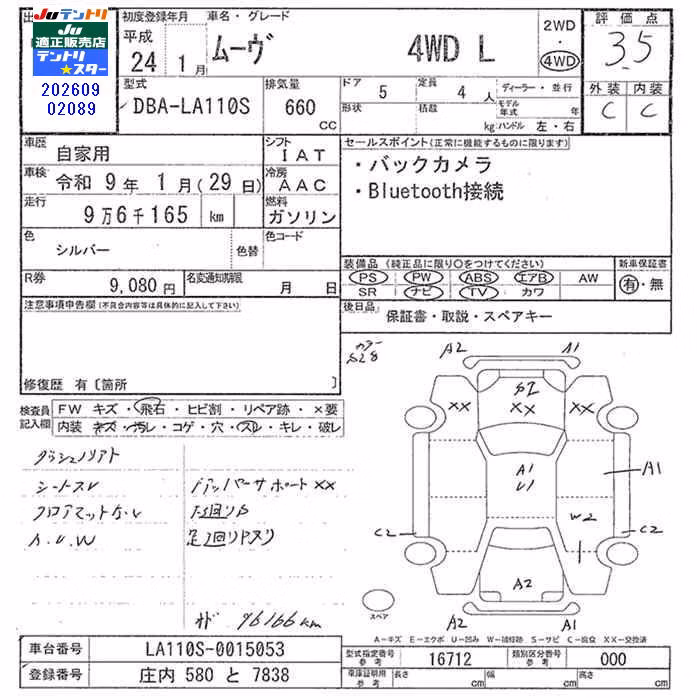 出
JUテントリ
JU
適正販売店
テントリ
★スター
202609
02089
初度登録年月
平成
24 1月
車名・グレード
ムーヴ 4WD L
2WD
・
4WD
評価点
3.5
外装 内装
C C
型式
DBA-LA110S
排気量
660
cc
ドア 5
定員 4 人
ディーラー・並行
形状
積載 kg
モデル年式 年
ハンドル 左・右
車歴
自家用
シフト
IAT
車検
令和 9年 1月(29日)
冷房
AAC
走行
9万6千165 km
燃料
ガソリン
色
シルバー
色替
色コード
R券
9,080円
名変通知期限
月 日
セールスポイント(正常に機能するものに限ります)
・バックカメラ
・Bluetooth接続
装備品(純正品に限り○をつけてください)
新車保証書
PS PW ABS エアB AW
SR ナビ TV カワ
有・無
後日品
保証書・取説・スペアキー
注意事項申告欄(不具合内容等は具体的に記入して下さい)
修復歴 有〔箇所 〕
検査員
記入欄
FW キズ・飛石・ヒビ割・リペア跡・×要
内装 キズ・汚レ・コゲ・穴・スレ・キレ・破レ
シートスレ
フロアマットナシ
A.U.W
アッパーサポートXX
下廻りサビ
足廻りサビ
96166km
A2 A1
S2
XX XX XX
A1
U1
A1
W2
C2 C2
A2
スペア
A2 A1
A-キズ E-エクボ U-凹み W-補修跡 S-サビ C-腐食 XX-交換済
車台番号
LA110S-0015053
登録番号
庄内 580 と 7838
型式指定番号
参考
16712
類別区分番号
参考
000
車庫証明用
参考
長さ cm
幅 cm
高さ cm